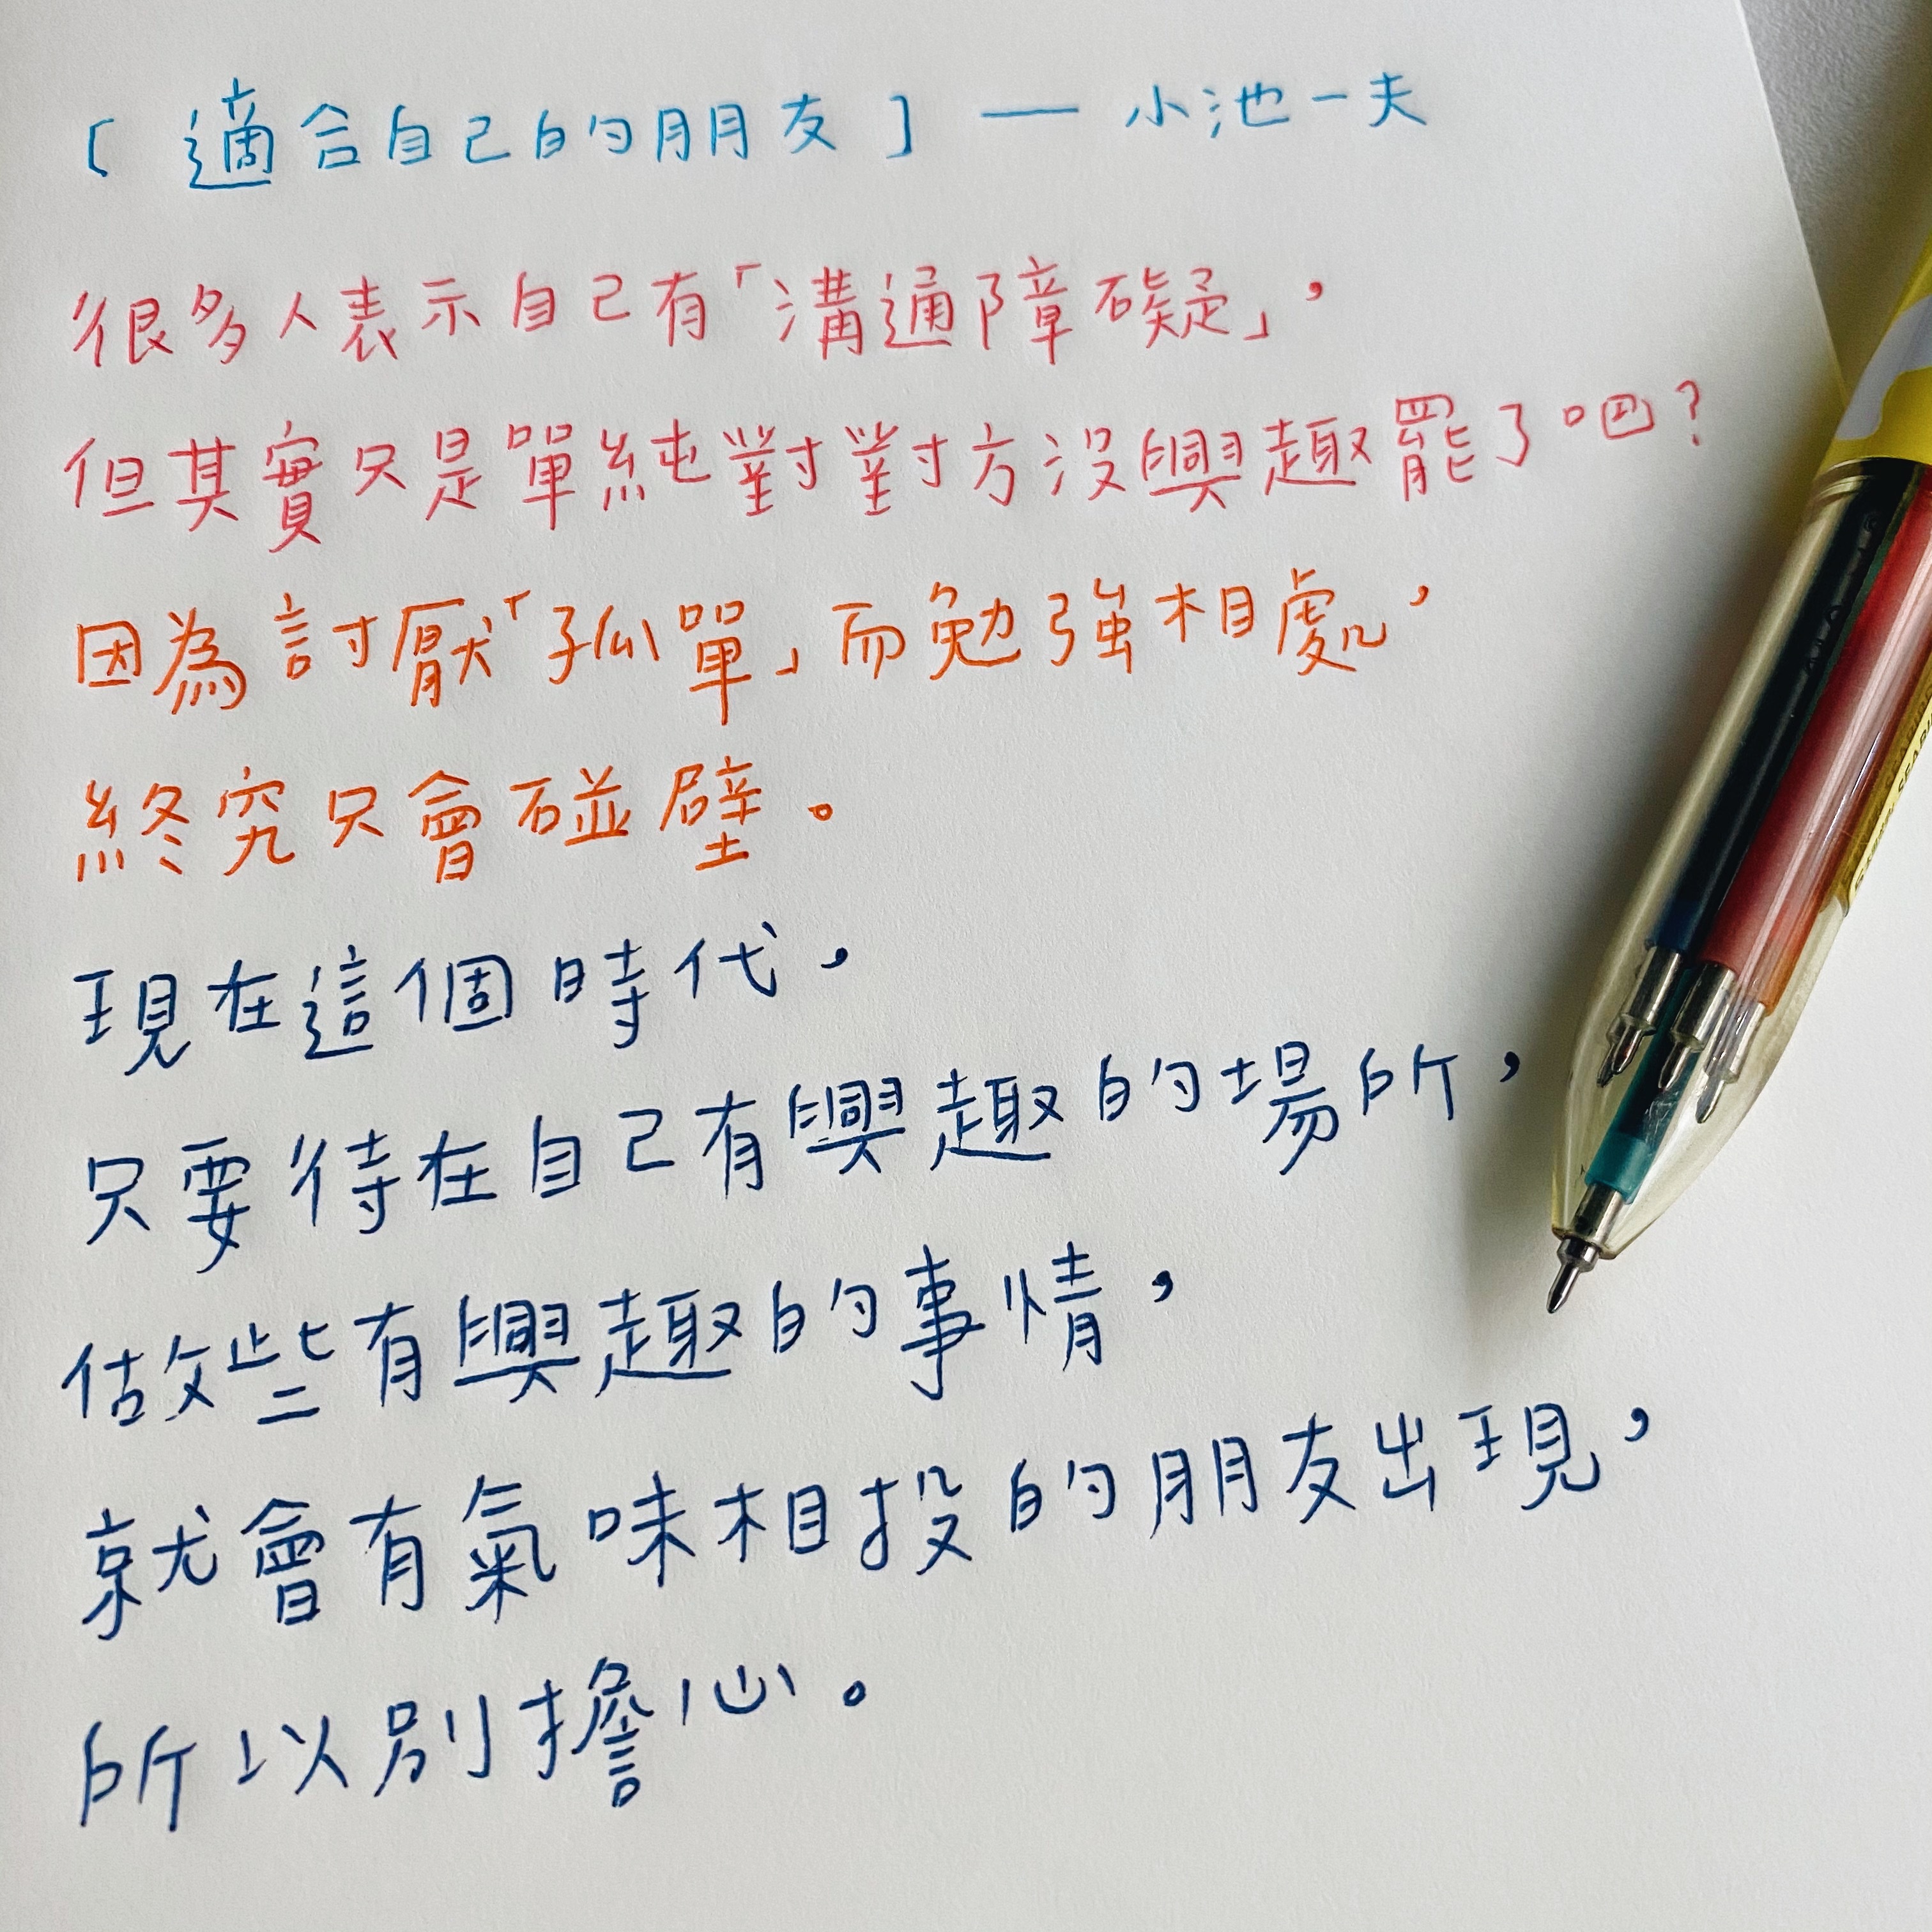 〔適合自己的朋友〕— 小池一夫
很多人表示自己有「溝通障礙」，
但其實只是單純對對方沒興趣罷了吧？
因為討厭「孤單」而勉強相處，
終究只會碰壁。
現在這個時代，
只要待在自己有興趣的場所，
做些有興趣的事情，
就會有氣味相投的朋友出現，
所以別擔心。